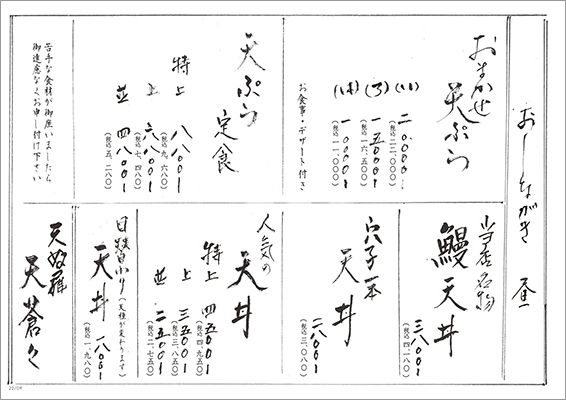 おしながき 昼
おまかせ
天ぷら
(い) 二〇、〇〇〇 (税込 二二、〇〇〇)
(ろ) 一五〇〇〇 (税込 一六、五〇〇)
(は) 一〇〇〇〇 (税込 一一、〇〇〇)
お食事・デザート付き
天ぷら
定食
特上 八八〇〇 (税込 九、六八〇)
上 六八〇〇 (税込 七、四八〇)
並 四八〇〇 (税込 五、二八〇)
苦手な食材が御座いましたら
御遠慮なくお申し付け下さい
当店名物
鰻天丼
三八〇〇 (税込 四、一八〇)
穴子一本
天丼
二八〇〇 (税込 三、〇八〇)
人気の
天丼
特上 四五〇〇 (税込 四、九五〇)
上 三五〇〇 (税込 三、八五〇)
並 二五〇〇 (税込 二、七五〇)
日替わり (天種が変わります)
天丼 一八〇〇 (税込 一、九八〇)
天ぷら
天蒼々